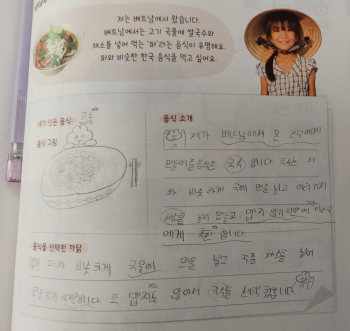 저는 베트남에서 왔습니다.
베트남에서는 고기 국물에 쌀국수와
채소를 넣어 먹는 '퍼'라는 음식이 유명해요.
퍼와 비슷한 한국 음식을 먹고 싶어요.
내가 만든 음식: 국수
음식 그림
음식 소개
제가 베트남에서 온 친구에게
만들어줄 음식은 국수 입니다. 국수는 퍼
와 비슷하게 국물 면을 넣고
채소를 넣어 만들고 맵지 않기 때문에
에게 추천 합니다.
음식을 선택한 까닭
퍼와 비슷하게 국물에 면을 넣고 각종 채소를 넣어
만들기 때문입니다. 또 맵지도 않아서 국수를 선택했습니다.